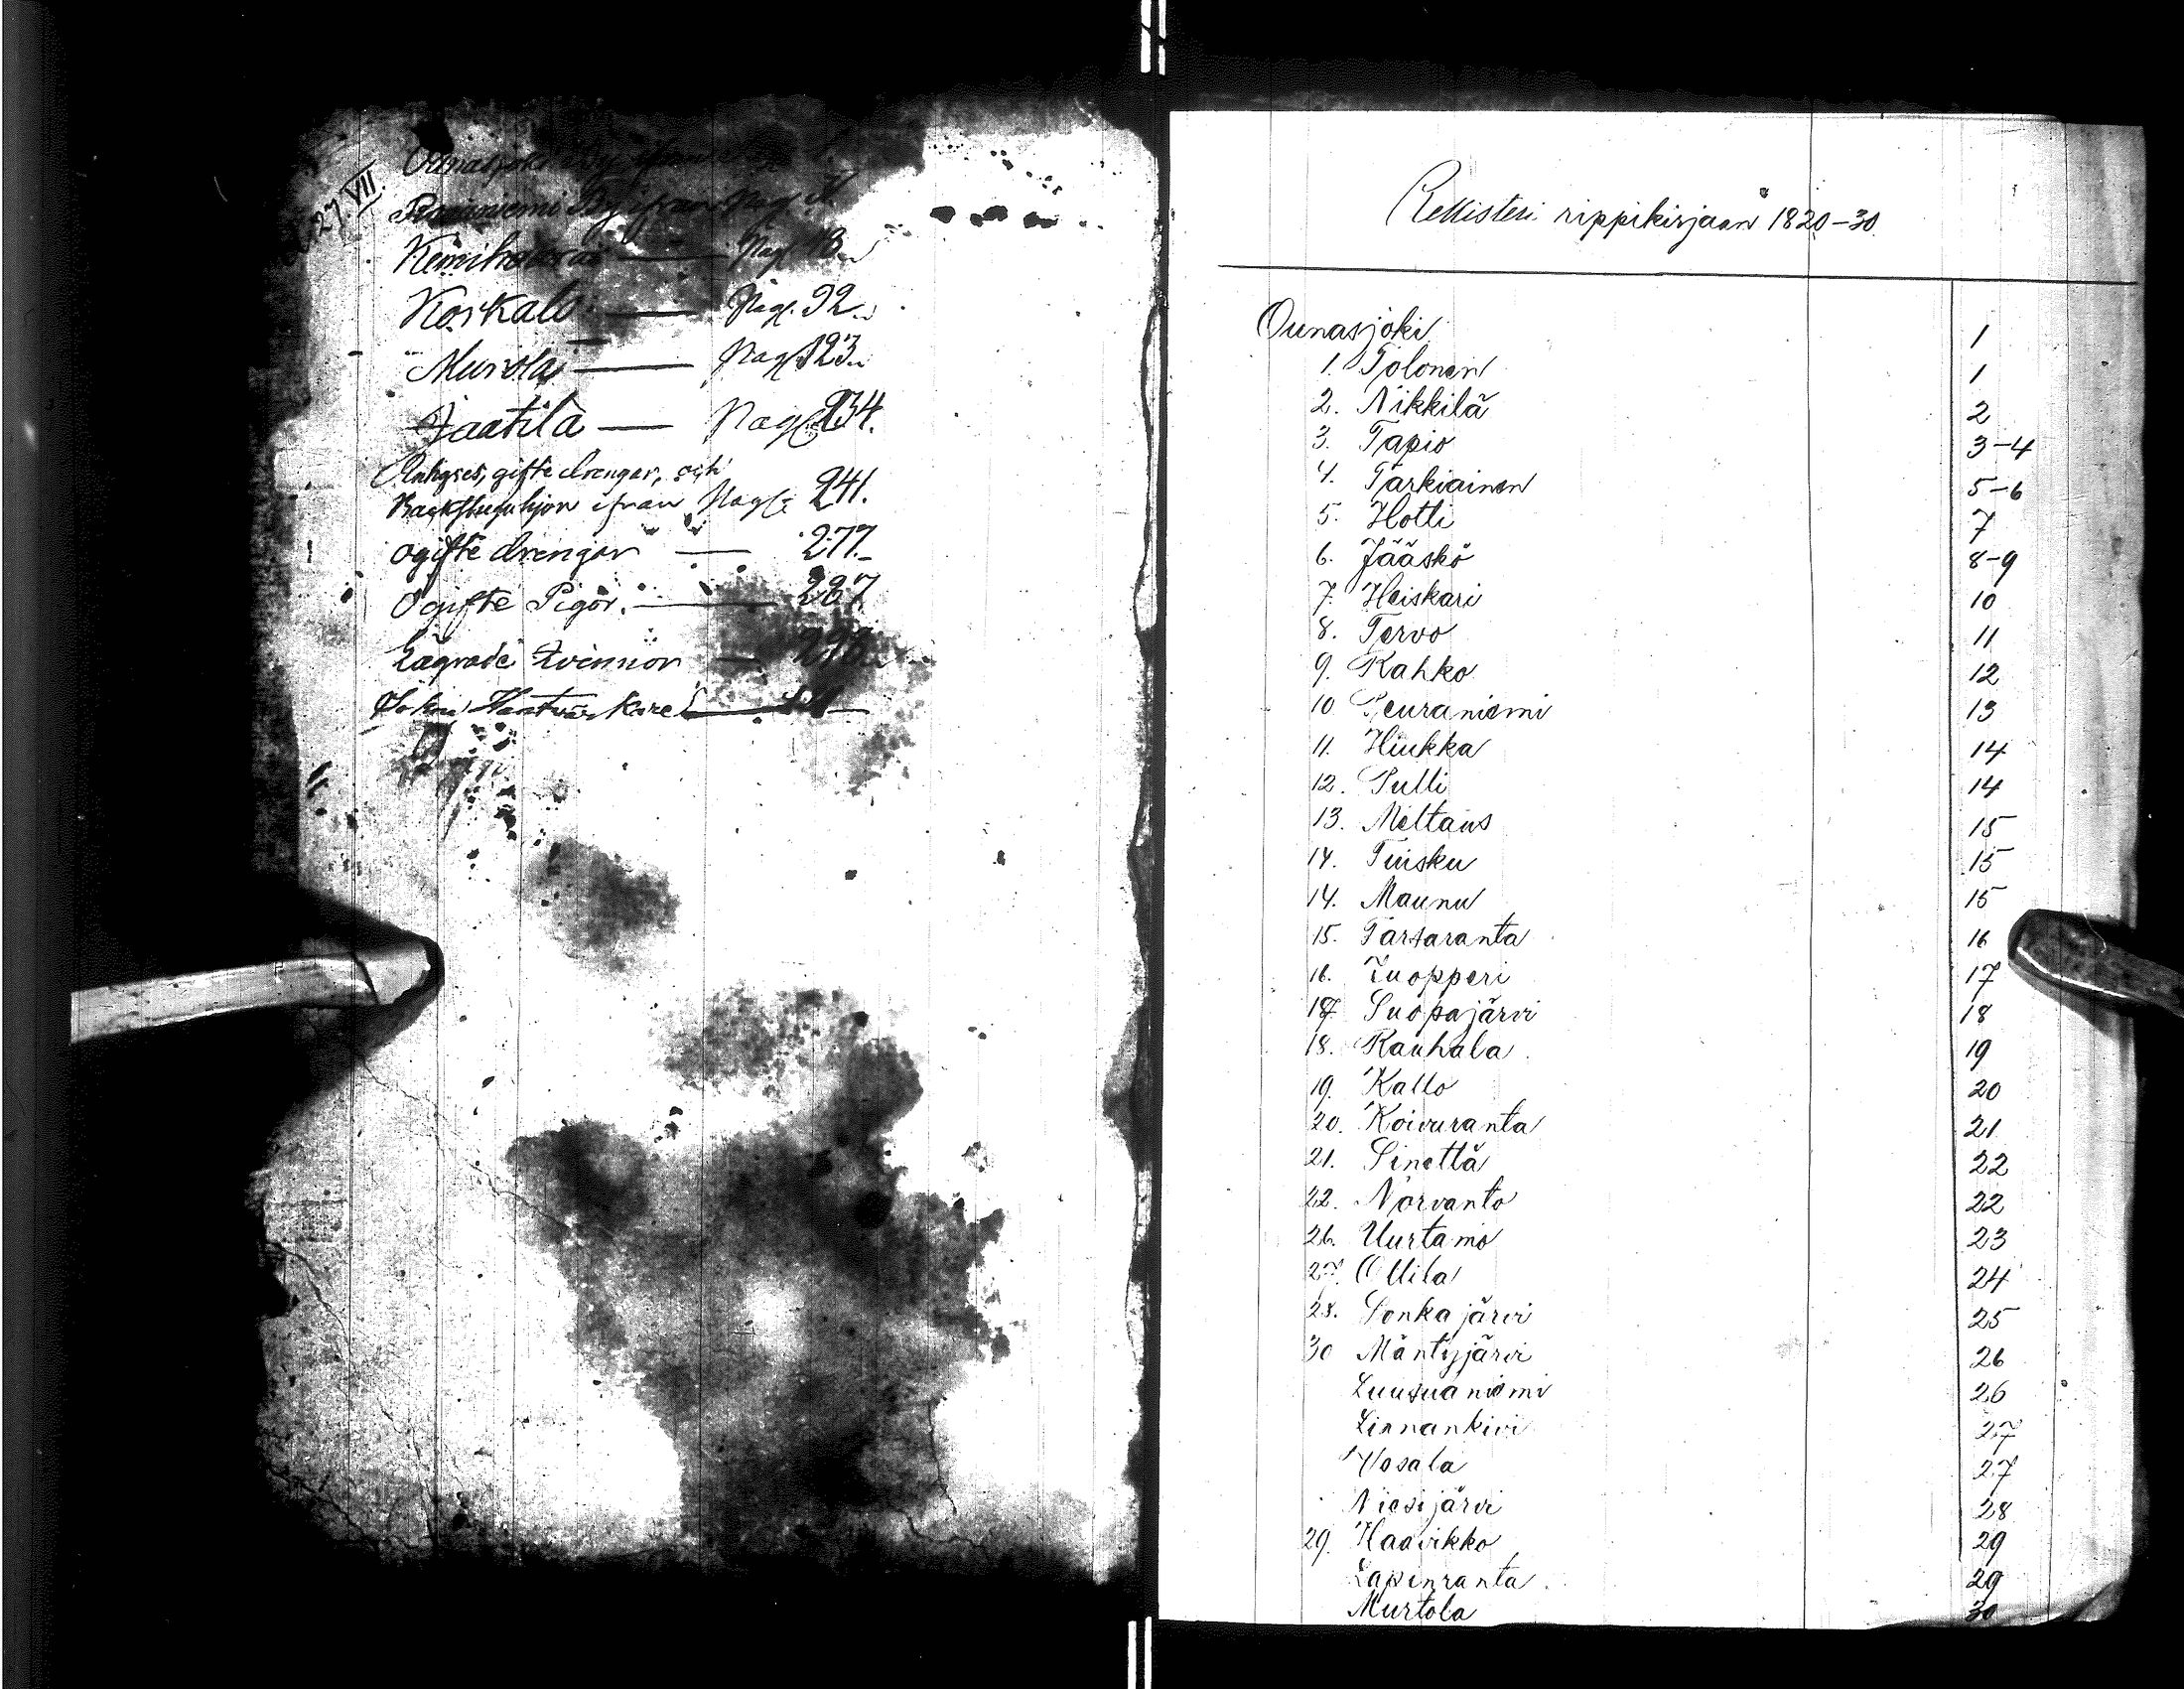 27 VII
Ounasjoki By ifrån
Rovaniemi By ifrån Pag.
Kemihaara — Pag.
Korkalo — Pag. 92.
Muurola — Pag. 123.
Jaatila — Pag. 234.
Inhyses, gifte drengar, och
Backstuguhjon ifrån Pag. 241.
ogifte drengar — 277.
Ogifte Pigor. — 287
Lägrade Kvinnor —
Sokne Hantvärkare —
Rekisteri rippikirjaan 1820–30
Ounasjoki 1
1. Tolonen 1
2. Nikkilä 2
3. Tapio 3–4
4. Tarkiainen 5–6
5. Hotti 7
6. Jääskö 8–9
7. Heiskari 10
8. Tervo 11
9. Kahko 12
10 Peuraniemi 13
11. Hiukka 14
12. Pulli 14
13. Meltaus 15
14. Tuisku 15
14. Maunu 15
15. Tarsaranta 16
16. Luopperi 17
17 Suopajärvi 18
18. Rauhala 19
19. Kallo 20
20. Koivuranta 21
21. Sinettä 22
22. Norvanto 22
26. Uurtamo 23
27. Ollila 24
28. Sonkajärvi 25
30 Mäntyjärvi 26
Luusuaniemi 26
Linnankivi 27
Vosala 27
Niesijärvi 28
29. Haavikko 29
Lapinranta 29
Murtola 30